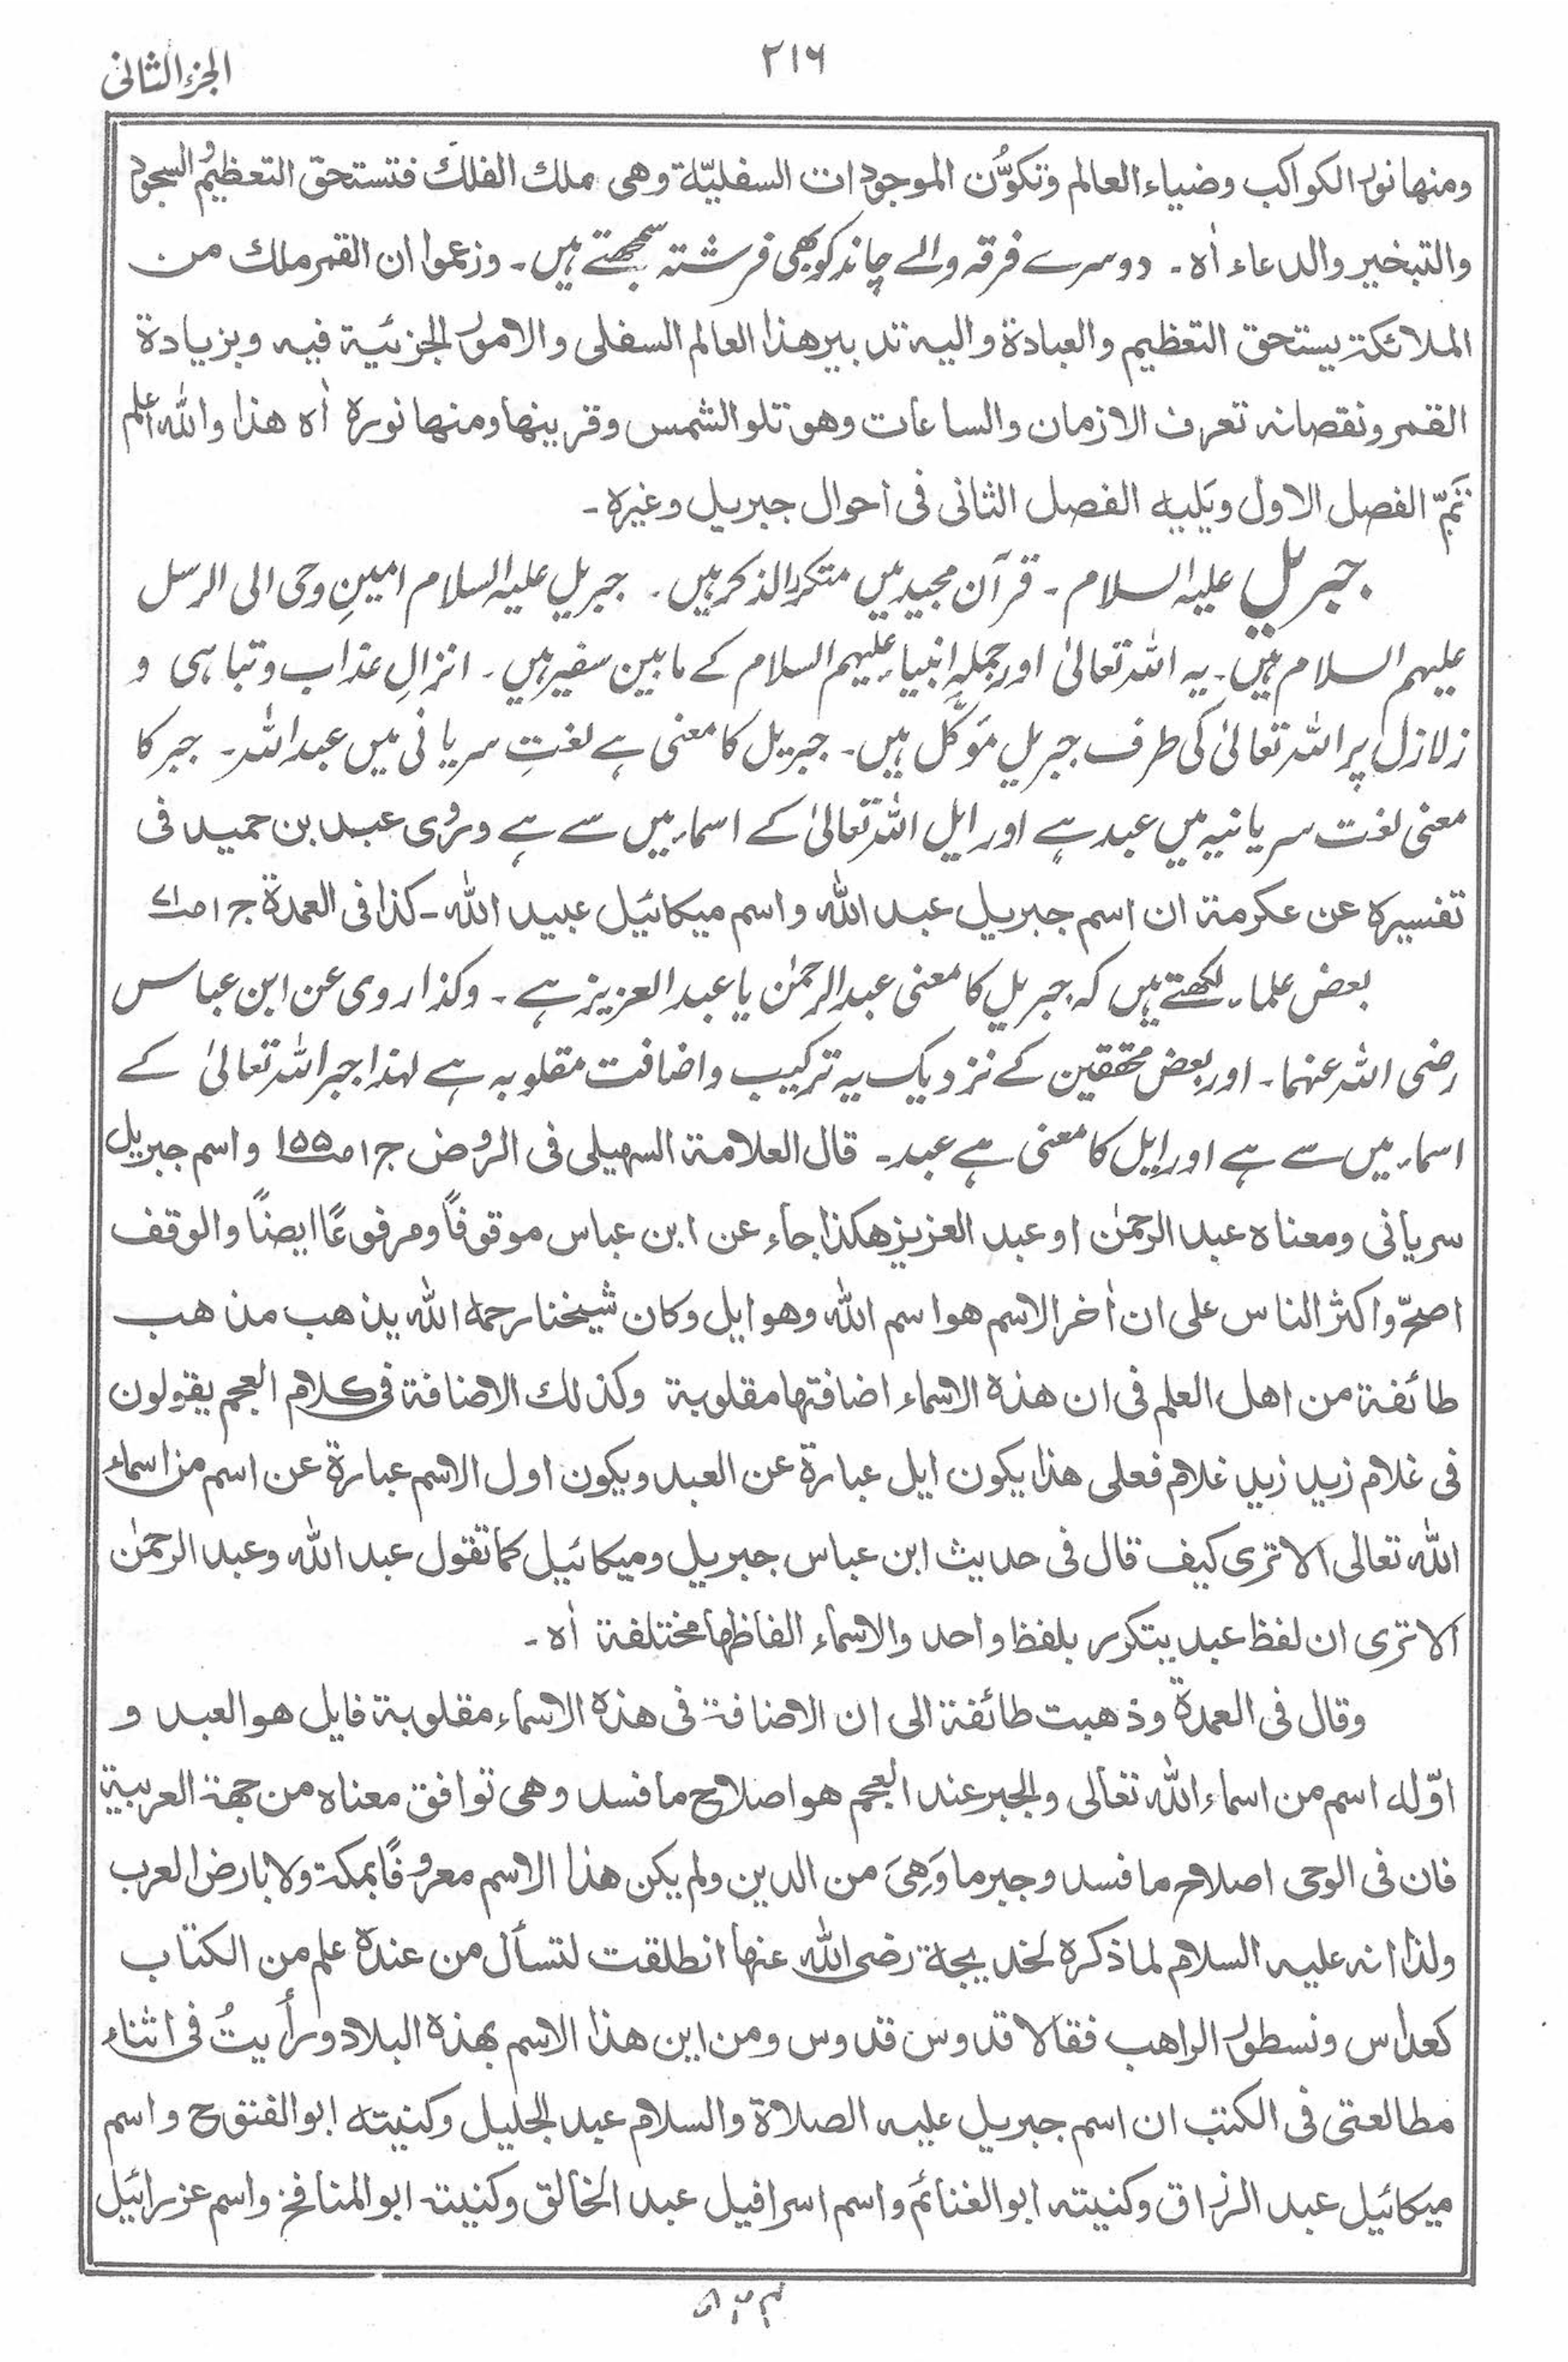 الجزء الثانی
۲۱۶
ومنها نور الکواکب وضیاء العالم وتکوُّن الموجودات السفلیّة وهی ملك الفلك فتستحق التعظیم والسجود
والتبخیر والدعاء اٰه۔ دوسرے فرقہ والے چاند کو بھی فرشتہ سمجھتے ہیں۔ وزعموا ان القمر ملك من
الملائکة یستحق التعظیم والعبادة والیه تدبیر هذا العالم السفلی والامور الجزئیة فیه وبزیادة
القمر ونقصانه تعرف الازمان والساعات وهو تلو الشمس وقرینها ومنها نوره اٰه هذا والله اعلم
تَمّ الفصل الاول ویَلیه الفصل الثانی فی احوال جبریل وغیره۔
جبریل علیہ السلام۔ قرآن مجید میں متکرر الذکر ہیں۔ جبریل علیہ السلام امینِ وحی الی الرسل
علیہم السلام ہیں۔ یہ اللہ تعالیٰ اور جملہ انبیاء علیہم السلام کے مابین سفیر ہیں۔ انزالِ عذاب و تباہی و
زلازل پر اللہ تعالیٰ کی طرف جبریل مؤکّل ہیں۔ جبریل کا معنی ہے لغتِ سریانی میں عبداللہ۔ جبر کا
معنی لغت سریانیہ میں عبد ہے اور ایل اللہ تعالیٰ کے اسماء میں سے ہے وروٰی عبد بن حمید فی
تفسیره عن عکرمة ان اسم جبریل عبد الله واسم میکائیل عبید الله۔ کذا فی العمدة ج۱ ص
بعض علماء لکھتے ہیں کہ جبریل کا معنی عبدالرحمٰن یا عبدالعزیز ہے۔ وکذا روی عن ابن عباس
رضی اللہ عنہما۔ اور بعض محققین کے نزدیک یہ ترکیب واضافت مقلوبہ ہے لہٰذا جبر اللہ تعالیٰ کے
اسماء میں سے ہے اور ایل کا معنی ہے عبد۔ قال العلامة السهیلی فی الروض ج۱ ص۱۵۵ واسم جبریل
سریانی ومعناه عبد الرحمٰن او عبد العزیز هکذا جاء عن ابن عباس موقوفاً ومرفوعًا ایضاً والوقف
اصحّ واکثر الناس علی ان اٰخر الاسم هو اسم الله وهو ایل وکان شیخنا رحمه الله یذهب مذهب
طائفة من اهل العلم فی ان هذه الاسماء اضافتها مقلوبة وکذلك الاضافة فی کلام العجم یقولون
فی غلام زید زید غلام فعلی هذا یکون ایل عبارة عن العبد ویکون اول الاسم عبارة عن اسم من اسماء
الله تعالی الا تری کیف قال فی حدیث ابن عباس جبریل ومیکائیل کما تقول عبد الله وعبد الرحمٰن
الا تری ان لفظ عبد یتکرر بلفظ واحد والاسماء الفاظها مختلفة اٰه۔
وقال فی العمدة وذهبت طائفة الی ان الاضافة فی هذه الاسماء مقلوبة فایل هو العبد و
اوّله اسم من اسماء الله تعالی والجبر عند العجم هو اصلاح ما فسد وهی توافق معناه من جهة العربیة
فان فی الوحی اصلاح ما فسد وجبر ما وَهِیَ من الدین ولم یکن هذا الاسم معروفًا بمکة ولا بارض العرب
ولذا انه علیه السلام لما ذکره لخدیجة رضی الله عنها انطلقت لتسأل من عنده علم من الکتاب
کعداس ونسطور الراهب فقالا قدوس قدوس ومن این هذا الاسم بهذه البلاد ورأیتُ فی اثناء
مطالعتی فی الکتب ان اسم جبریل علیه الصلاة والسلام عبد الجلیل وکنیته ابو الفتوح واسم
میکائیل عبد الرزاق وکنیته ابو الغنائم واسم اسرافیل عبد الخالق وکنیته ابو المنافخ واسم عزرائیل